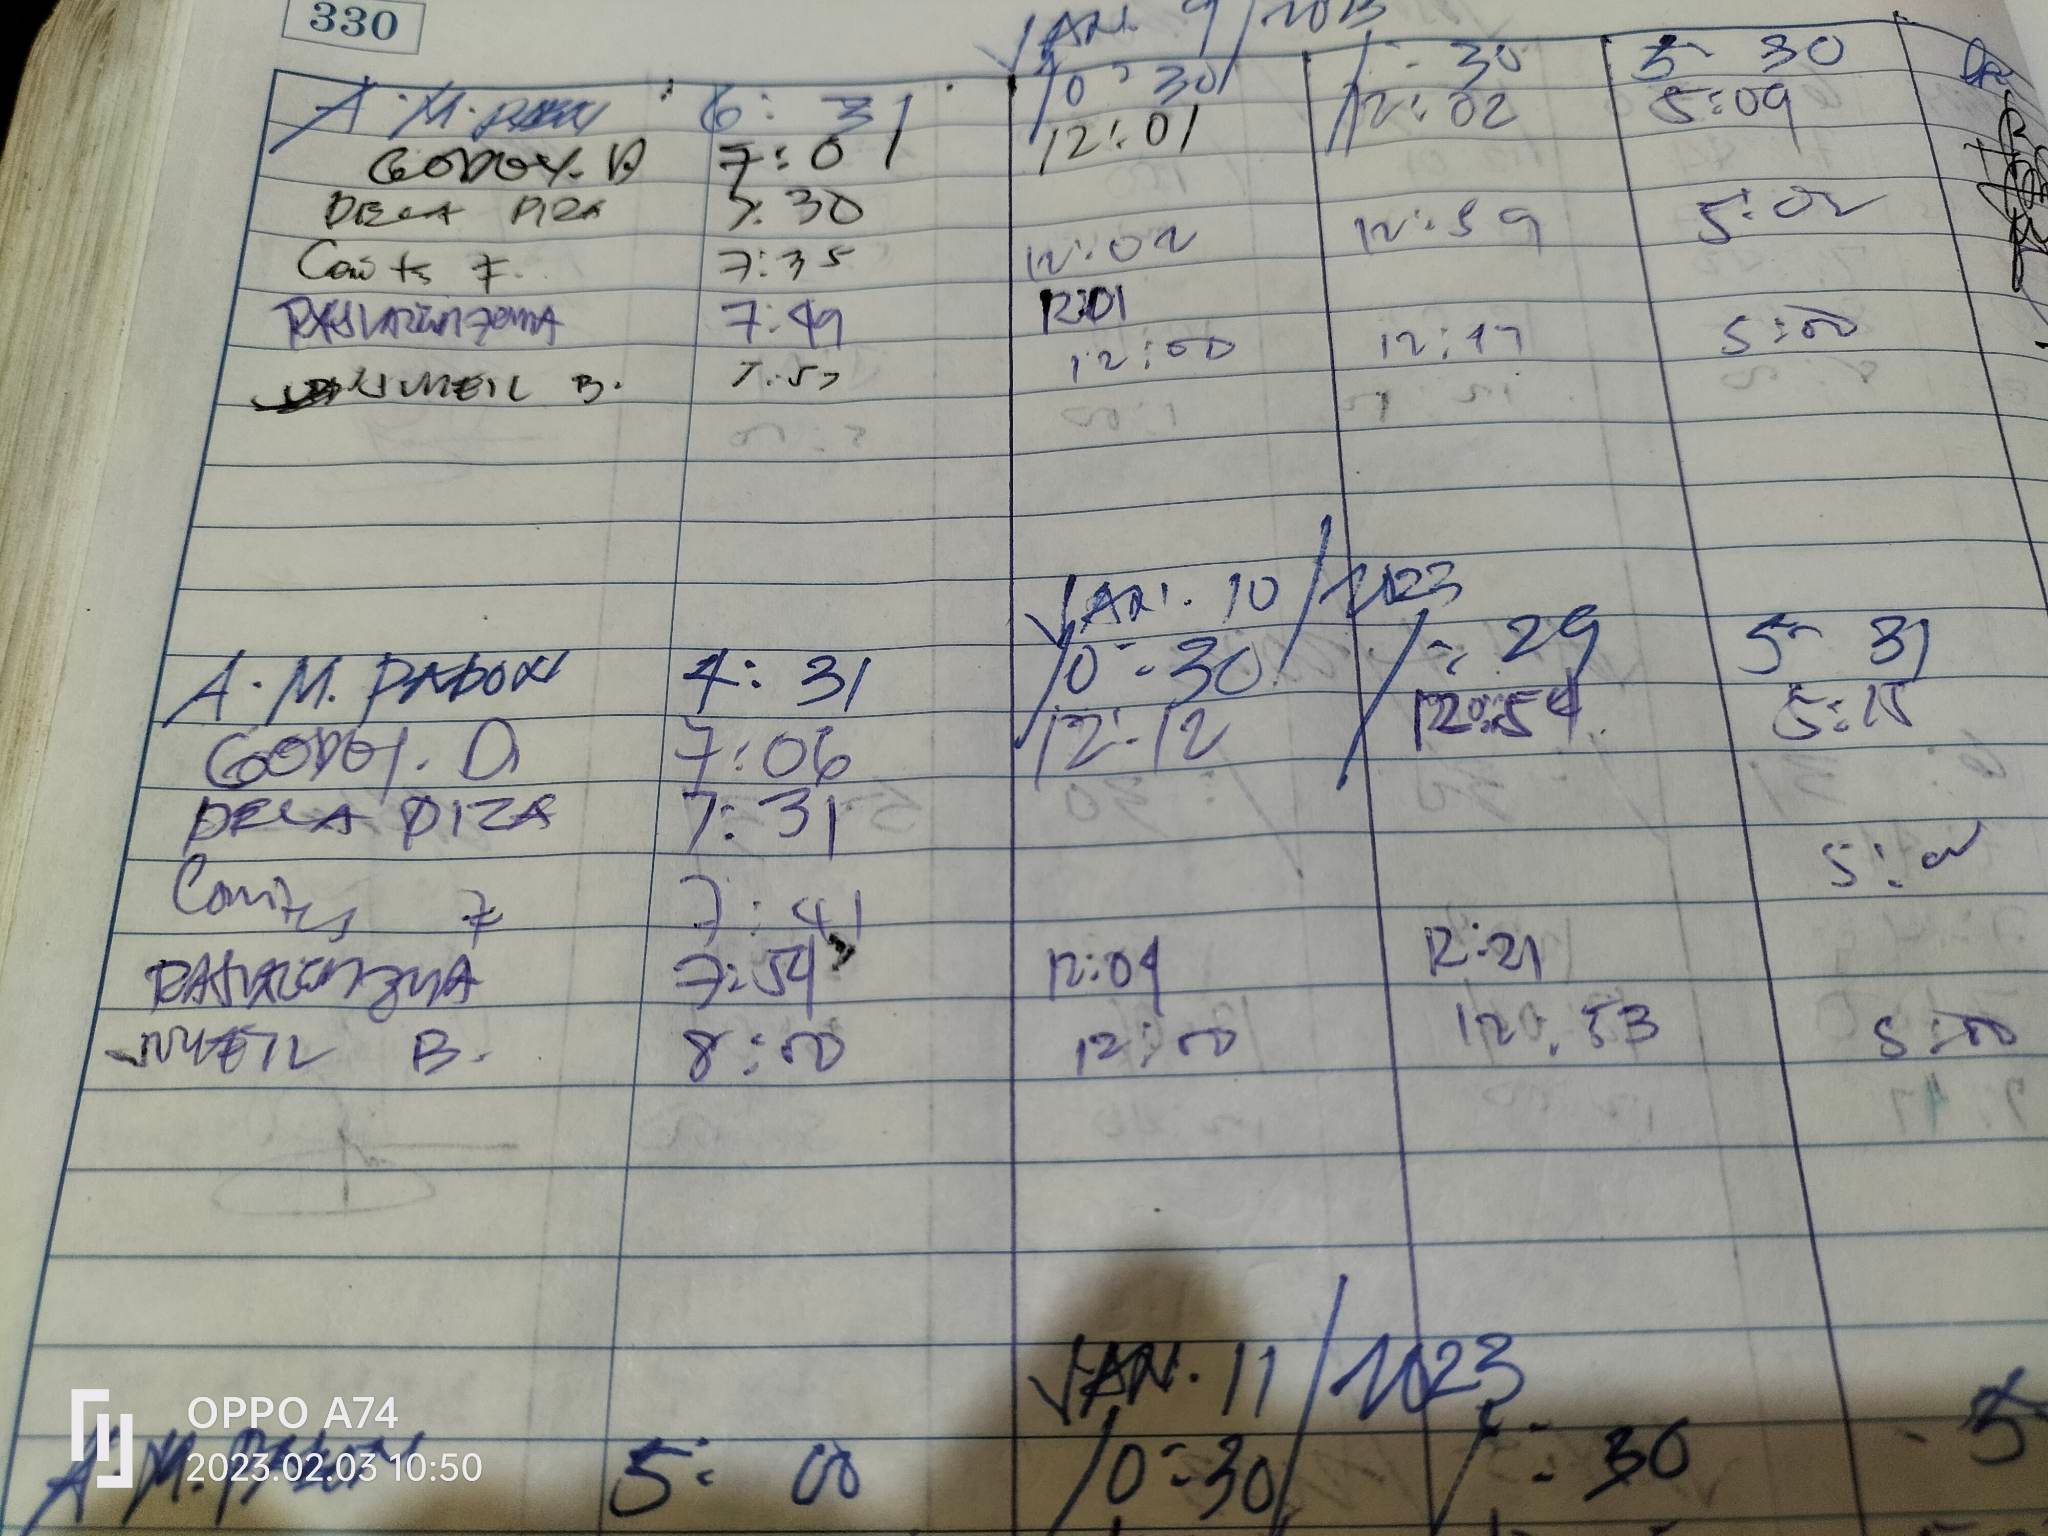 330
JAN. 9/2023
A.M. PABON 6: 31 10:30 1:30 5:30
GODOY. D 7:01 12:01 12:02 5:09
DELA PIZA 7:30
7:35 12:02 12:59 5:02
7:49 12:01
NMEIL B. 7:57 12:00 12:17 5:00
JAN. 10/2023
A.M. PABON 4: 31 10:30 1:29 5:31
GODOY. D 7:06 12:12 12:54 5:15
DELA PIZA 7:31
7:41 5:02
7:54 12:04 12:21
NMEIL B. 8:00 12:00 12:53 5:00
JAN. 11/2023
A.M. PABON 5: 00 10:30 1:30 5
OPPO A74
2023.02.03 10:50